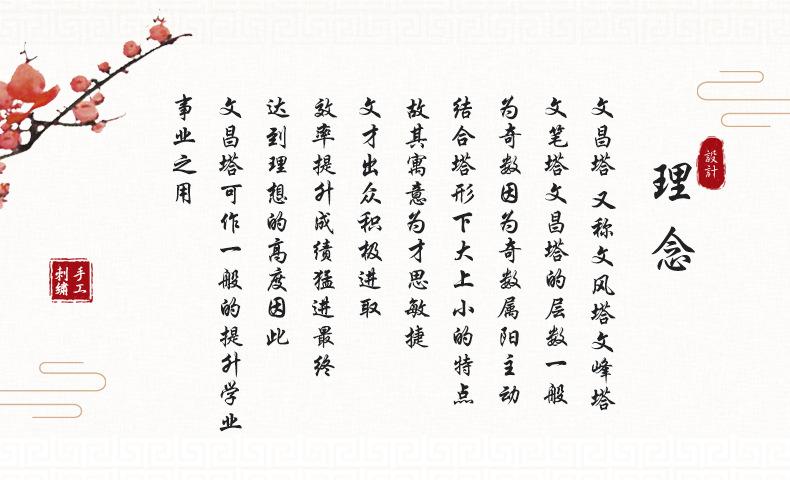 設計
理念
文昌塔 又称文风塔文峰塔
文笔塔文昌塔的层数一般
为奇数因为奇数属阳主动
结合塔形下大上小的特点
故其寓意为才思敏捷
文才出众积极进取
效率提升成绩猛进最终
达到理想的高度因此
文昌塔可作一般的提升学业
事业之用
手工
刺繡